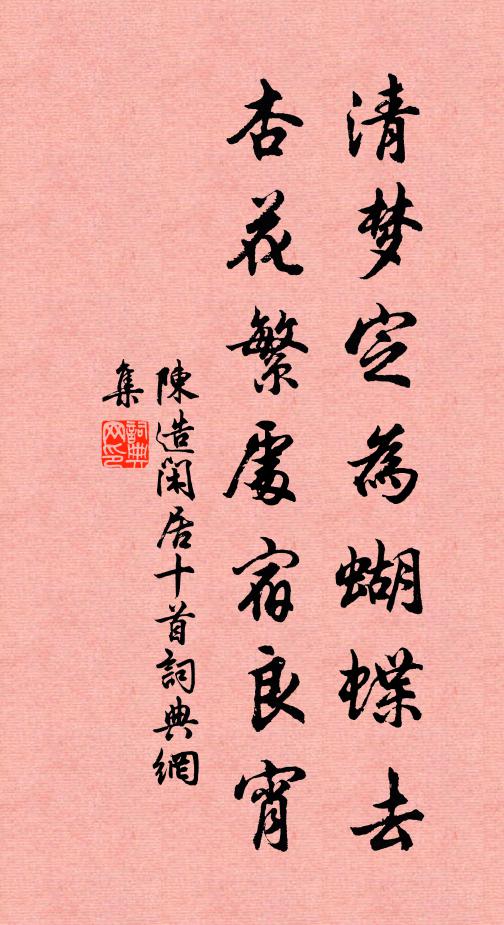 清梦定為蝴蝶去
杏花繁處宿良宵
陳造閑居十首詞典網
集
詞典
网印